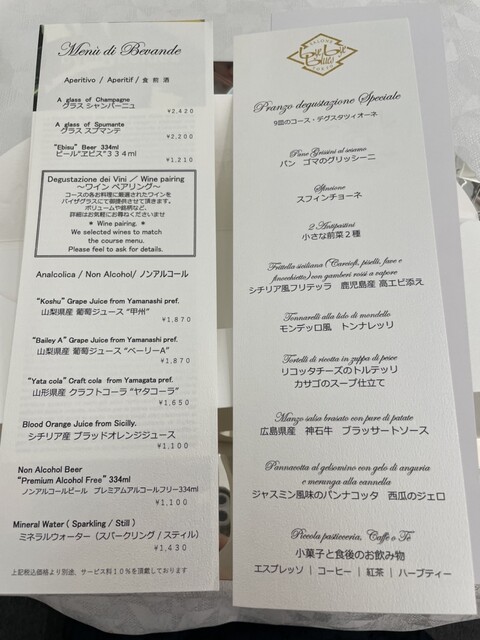 Menù di Bevande
Aperitivo / Aperitif / 食 前 酒
A glass of Champagne
グラス シャンパーニュ
￥2,420
A glass of Spumante
グラス スプマンテ
￥2,200
"Ebisu" Beer 334ml
ビール"ヱビス"３３４ml
￥1,210
Degustazione dei Vini ／ Wine pairing
～ワイン ペアリング～
コースの各お料理に厳選されたワインを
バイザグラスにて御提供させて頂きます。
ボリュームや銘柄など、
詳細はお気軽にお尋ねくださいませ
＊ Wine pairing. ＊
We selected wines to match
the course menu.
Please feel to ask for details.
Analcolica / Non Alcohol/ ノンアルコール
"Koshu" Grape Juice from Yamanashi pref.
山梨県産 葡萄ジュース "甲州"
￥1,870
"Bailey A" Grape Juice from Yamanashi pref.
山梨県産 葡萄ジュース "ベーリーA"
￥1,870
"Yata cola" Craft cola from Yamagata pref.
山形県産 クラフトコーラ "ヤタコーラ"
￥1,650
Blood Orange Juice from Sicily.
シチリア産 ブラッドオレンジジュース
￥1,100
Non Alcohol Beer
"Premium Alcohol Free" 334ml
ノンアルコールビール プレミアムアルコールフリー334ml
￥1,100
Mineral Water ( Sparkling / Still )
ミネラルウォーター（スパークリング / スティル）
￥1,430
上記税込価格より別途、サービス料１０％を頂戴しております
Pranzo degustazione Speciale
9皿のコース・デグスタツィオーネ
Pane Grissini al sesamo
パン ゴマのグリッシーニ
Sfincione
スフィンチョーネ
2 Antipastini
小さな前菜２種
Frittella siciliana (Carciofi, piselli, fave e
finocchietto) con gamberi rossi a vapore
シチリア風フリテッラ 鹿児島産 高エビ添え
Tonnarelli alla lido di mondello
モンデッロ風 トンナレッリ
Tortelli di ricotta in zuppa di pesce
リコッタチーズのトルテッリ
カサゴのスープ仕立て
Manzo salsa brasato con pure di patate
広島県産 神石牛 ブラッサートソース
Pannacotta al gelsomino con gelo di anguria
e meranga alla cannella
ジャスミン風味のパンナコッタ 西瓜のジェロ
Piccola pasticceria, Caffe o Te
小菓子と食後のお飲み物
エスプレッソ | コーヒー | 紅茶 | ハーブティー